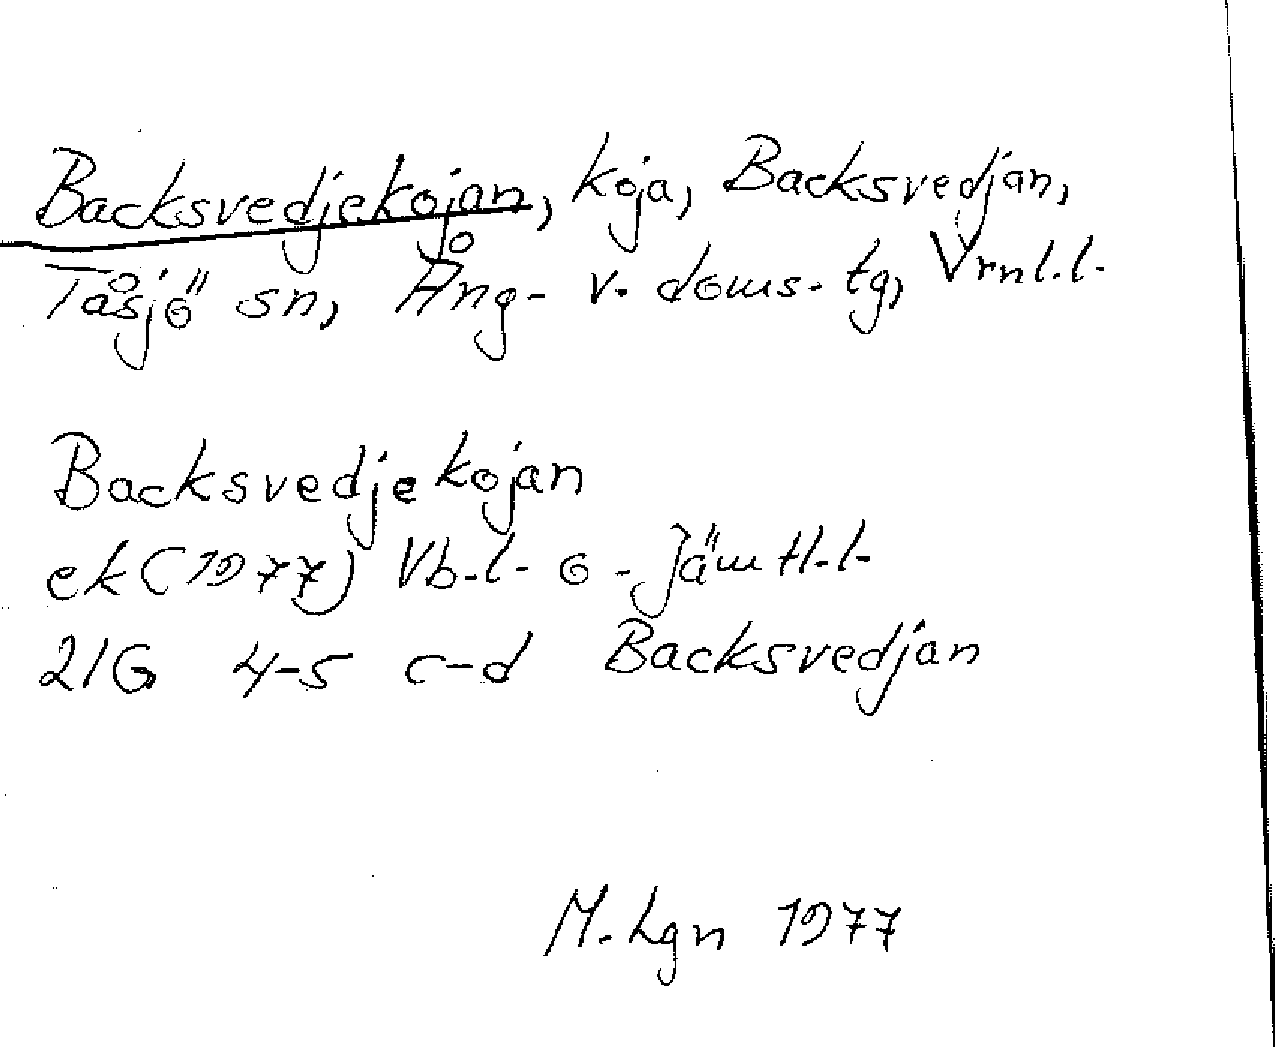 Backsvedjekojan, koja, Backsvedjan,
Tåsjö sn, Ång- v. doms. tg, Vrnl.l.
Backsvedjekojan
ek (1977) Vb.l- o - Jämtl.l-
21G 4-5 c-d Backsvedjan
M. Lgn 1977